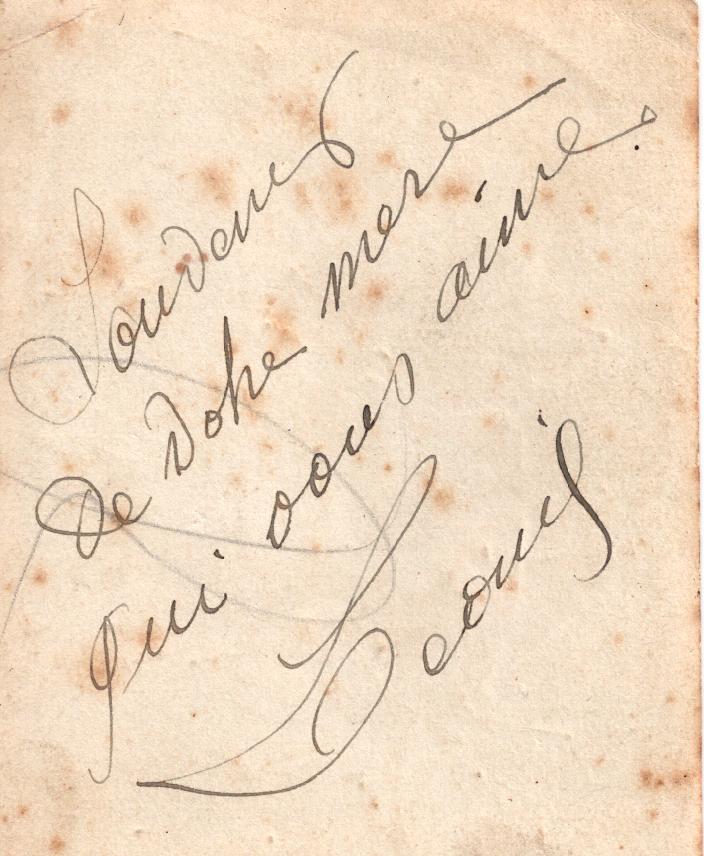 Souvenir
De Votre mere
Qui vous aime.